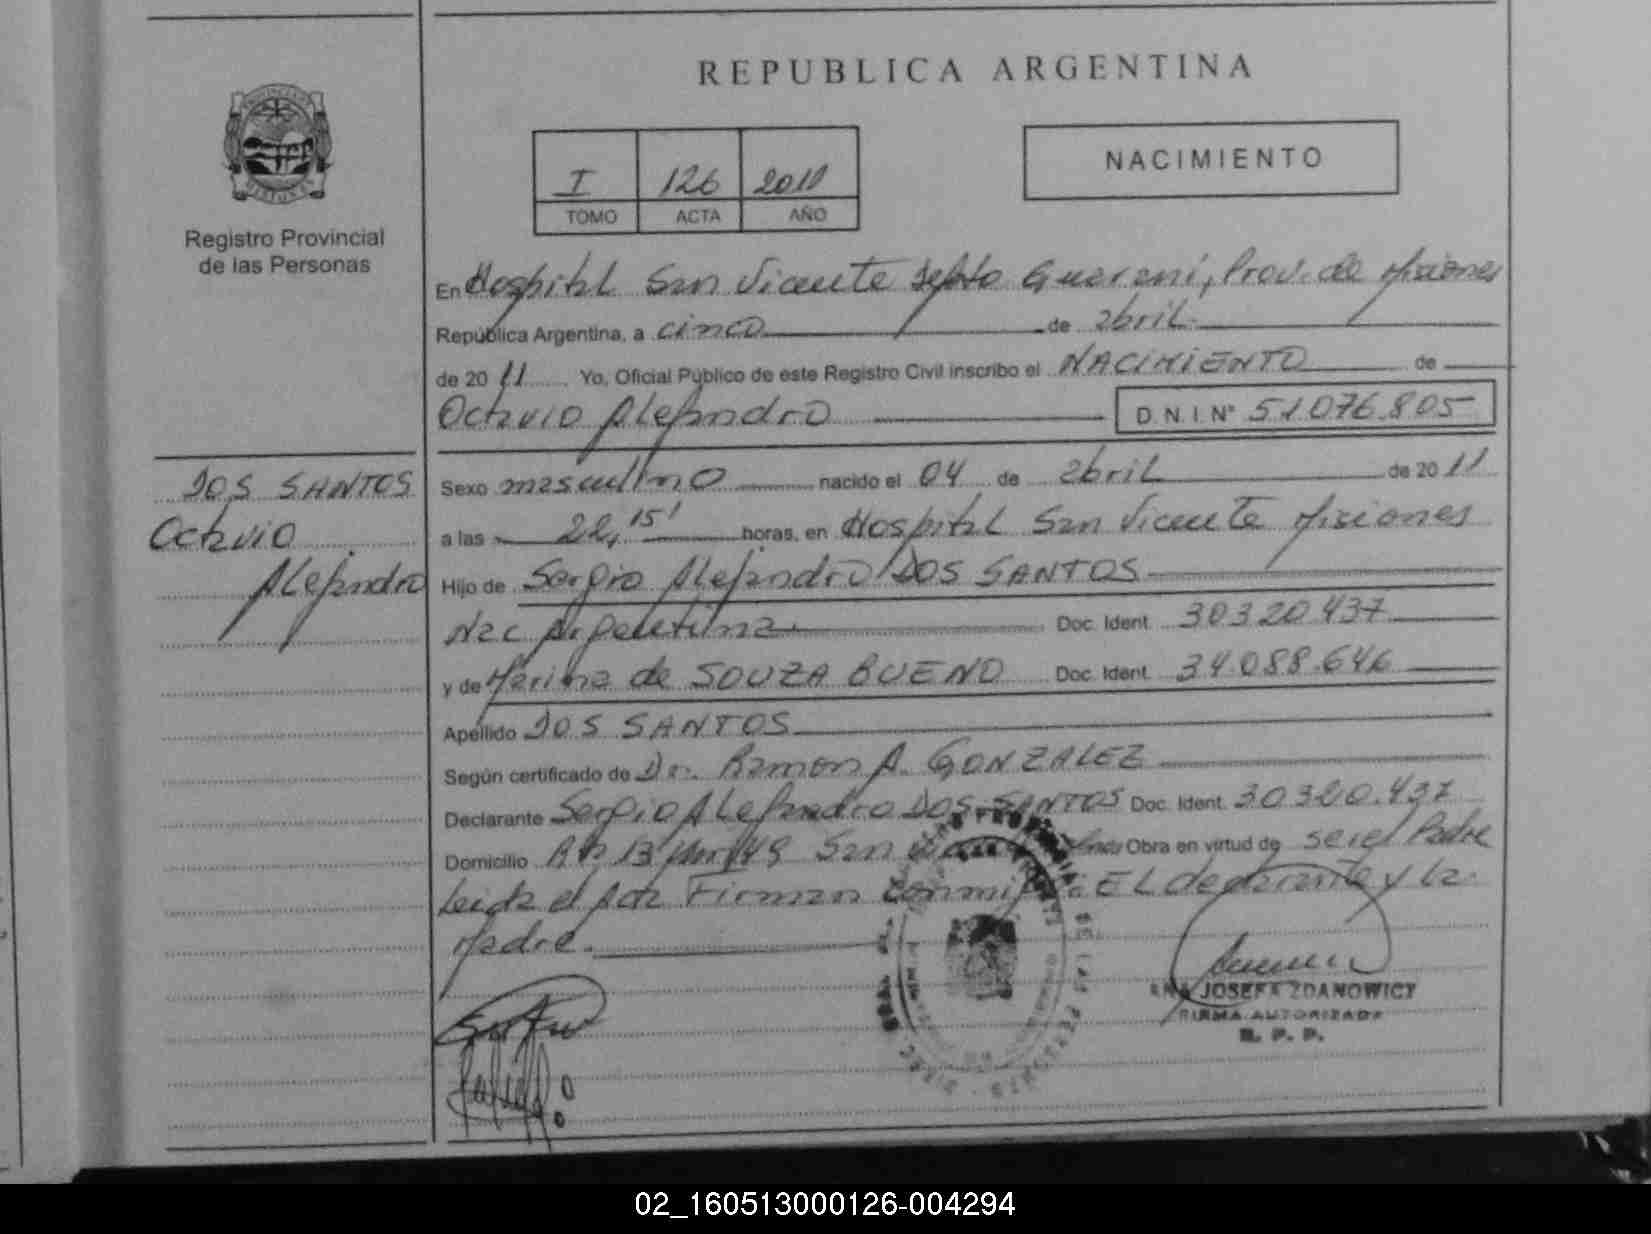 REPUBLICA ARGENTINA
PROVINCIA DE
MISIONES
Registro Provincial
de las Personas
I 126 2011
TOMO ACTA AÑO
NACIMIENTO
En Hospital San Vicente Depto Guarani, Prov. de Misiones
República Argentina, a cinco de abril
de 20 11 Yo, Oficial Público de este Registro Civil inscribo el NACIMIENTO de
Octavio Alejandro D.N.I. Nº 51.076.805
DOS SANTOS
Octavio
Alejandro
Sexo masculino nacido el 04 de abril de 20 11
a las 22,15' horas, en Hospital San Vicente Misiones
Hijo de Sergio Alejandro DOS SANTOS
Nac Argentina Doc. Ident. 30320437
y de Marina de SOUZA BUENO Doc. Ident. 34.088.646
Apellido DOS SANTOS
Según certificado de Dr. Ramon A. GONZALEZ
Declarante Sergio Alejandro DOS SANTOS Doc. Ident. 30320.437
Domicilio 13 San Obra en virtud de ser el Padre
Leida el Acta Firman conmigo: EL declarante y la
Madre.
ANA JOSEFA ZDANOWICZ
FIRMA AUTORIZADA
R. P. P.
02_160513000126-004294